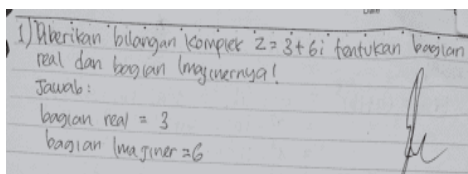 1) Diberikan bilangan komplek z = 3 + 6i tentukan bagian
real dan bagian imajinernya!
Jawab:
bagian real = 3
bagian imajiner = 6